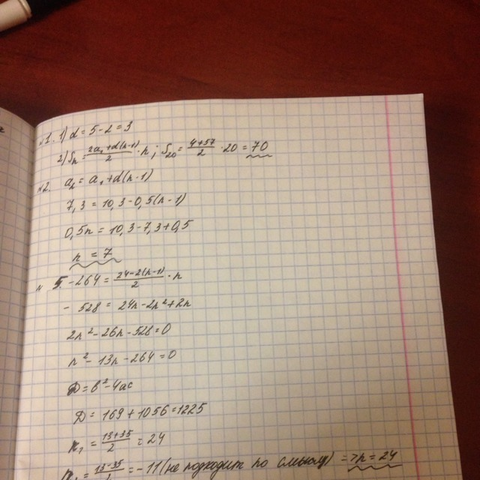 №1. 1) d = 5-2 = 3
2) Sn = (2a₁+d(n-1))/2 · n ; S₂₀ = (4+57)/2 · 20 = 70
№2. aₙ = a₁+d(n-1)
7,3 = 10,3-0,5(n-1)
0,5n = 10,3-7,3+0,5
n = 7
№ 5. -264 = (24-2(n-1))/2 · n
- 528 = 24n-2n²+2n
2n²-26n-528=0
n²-13n-264=0
D=b²-4ac
D = 169+1056=1225
n₁ = (13+35)/2 = 24
= (13-35)/ = -11 (не подходит по смыслу) => n = 24